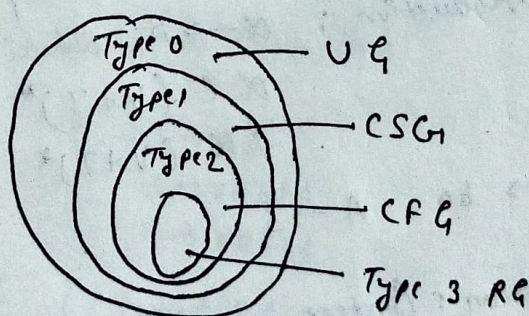 Type 0 UG
Type1 CSG
Type2
CFG
Type 3 RG